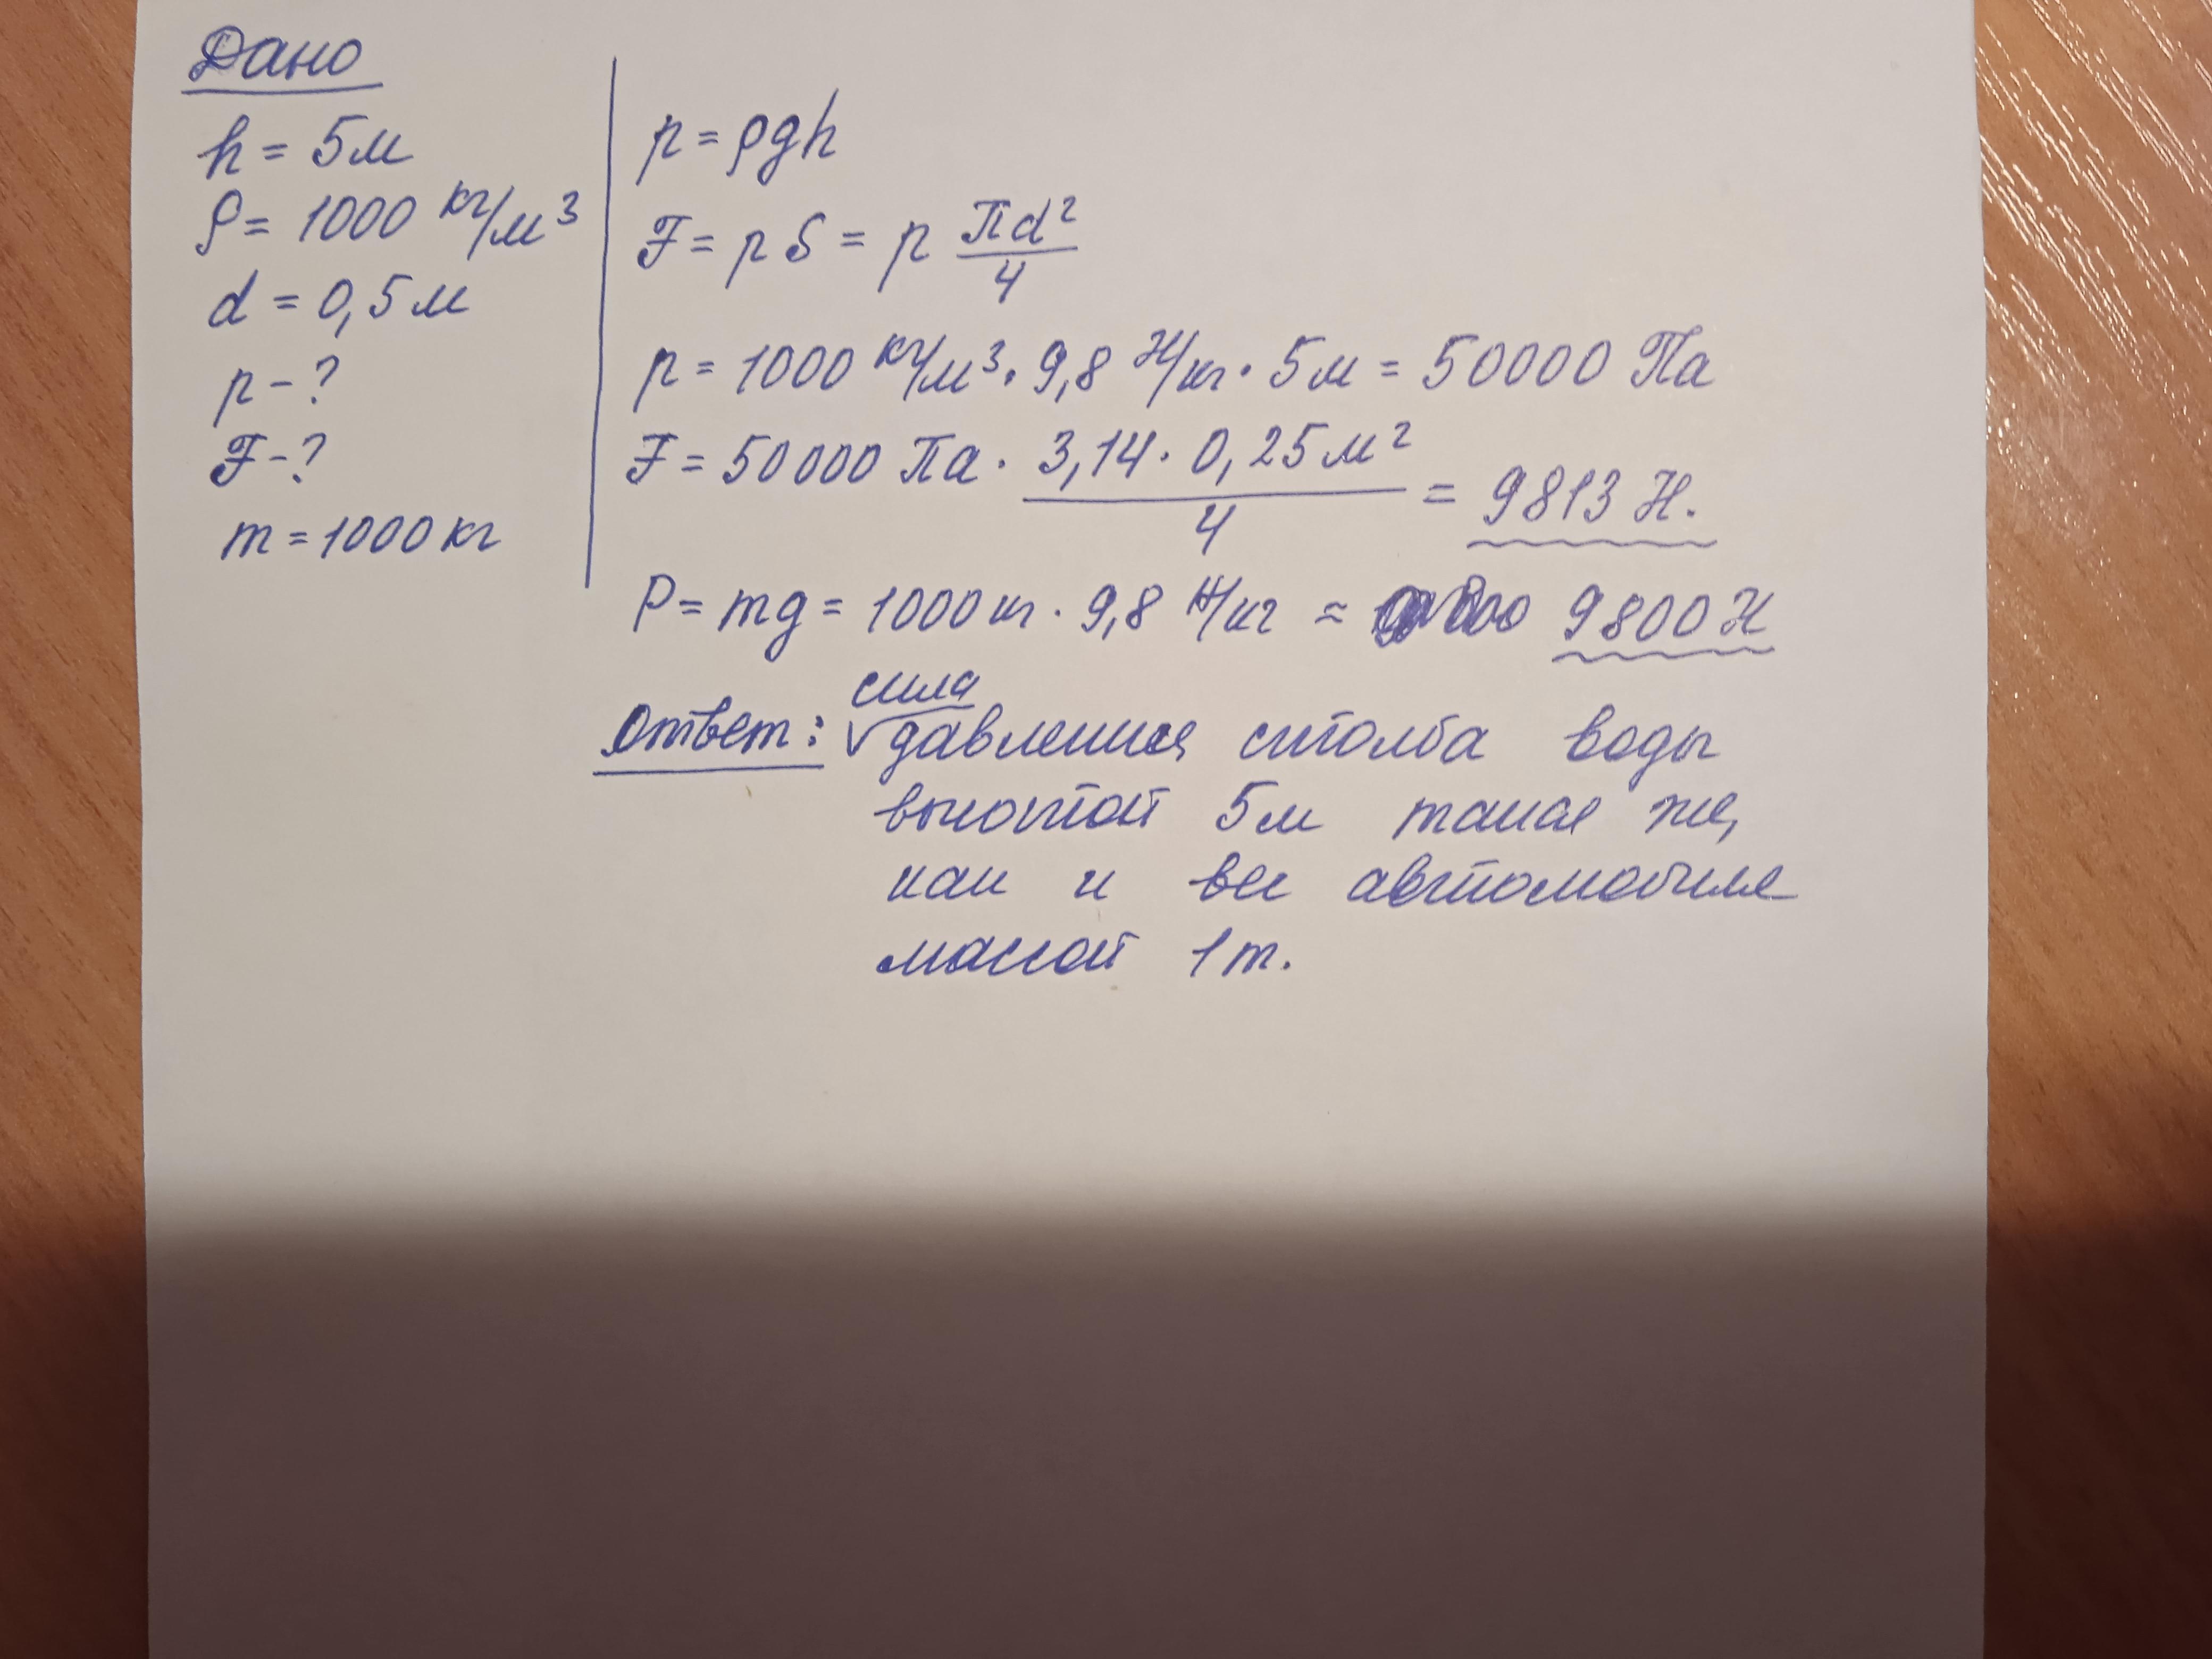 Дано
h = 5м
ρ = 1000 кг/м³
d = 0,5м
p - ?
F - ?
m = 1000 кг
p = ρgh
F = p S = p πd²/4
p = 1000 кг/м³ · 9,8 Н/кг · 5м = 50000 Па
F = 50000 Па · 3,14 · 0,25м²/4 = 9813 Н.
P = mg = 1000 кг · 9,8 Н/кг ≈ 9800 Н
сила
Ответ: √давления столба воды
высотой 5м такая же,
как и вес автомобиля
массой 1т.